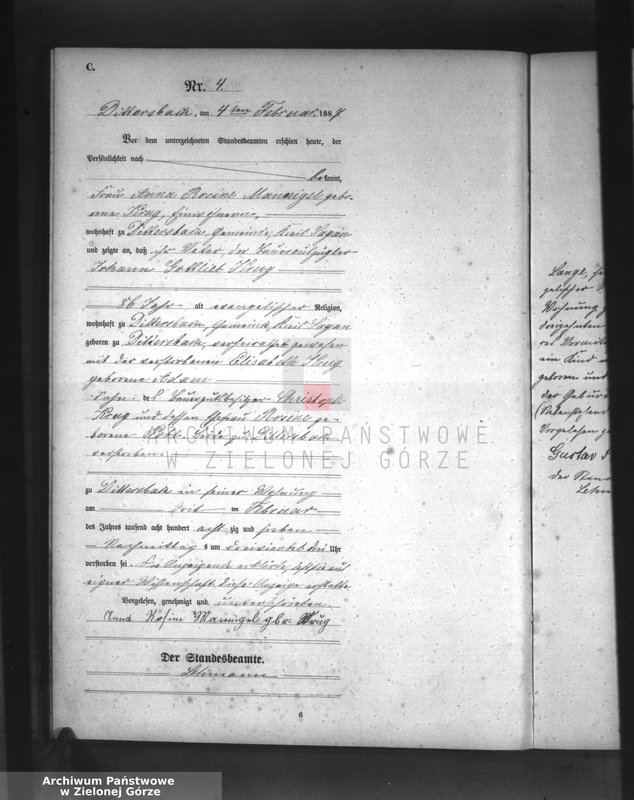 C.
Nr. 4.
Dittersbach, am 4ten Februar 1887
Vor dem unterzeichneten Standesbeamten erschien heute, der
Persönlichkeit nach
bekannt,
Frau Anna Rosine Mannigel gebo-
rene Krug,
wohnhaft zu Dittersbach, Gemeinde, Kreis Sagan
und zeigte an, daß ihr Vater, der Bauerauszügler
Johann Gottlieb Krug
86 Jahr alt evangelischer Religion,
wohnhaft zu Dittersbach, Gemeinde, Kreis Sagan
geboren zu Dittersbach, verheirathet gewesen
mit der verstorbenen Elisabeth Krug
geborene Adam
Sohn des Bauergutbesitzer Christoph
Krug und dessen Ehefrau Rosine ge-
borene Beide zu Dittersbach
verstorben
zu Dittersbach in seiner Wohnung
am ten Februar
des Jahres tausend acht hundert achtzig und sieben
Nachmittags um dreiviertel drei Uhr
verstorben sei. Die Anzeigende erklärte, daß sie aus
eigner Wissenschaft diese Anzeige erstatte.
Vorgelesen, genehmigt und unterschrieben.
Anna Rosine Mannigel gbr. Krug
Der Standesbeamte.
Lehmann
6
Lange,
gelischer
Wohnung
ein Kind
geboren und
der Geburt
Vorgelesen
Gustav
der Stand
Lehm
ARCHIWUM PAŃSTWOWE
W ZIELONEJ GÓRZE
Archiwum Państwowe
w Zielonej Górze